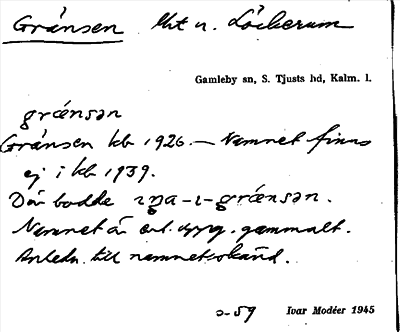 Gränsen Lht u. Löckerum
Gamleby sn, S. Tjusts hd, Kalm. l.
grǽnsən
Gränsen kb 1926. — Namnet finns
ej i kb 1939.
Där bodde ıŋa-ı-grǽnsən.
Namnet är enl. uppg. gammalt.
Anledn. till namnet okänd.
Ivar Modéer 1945